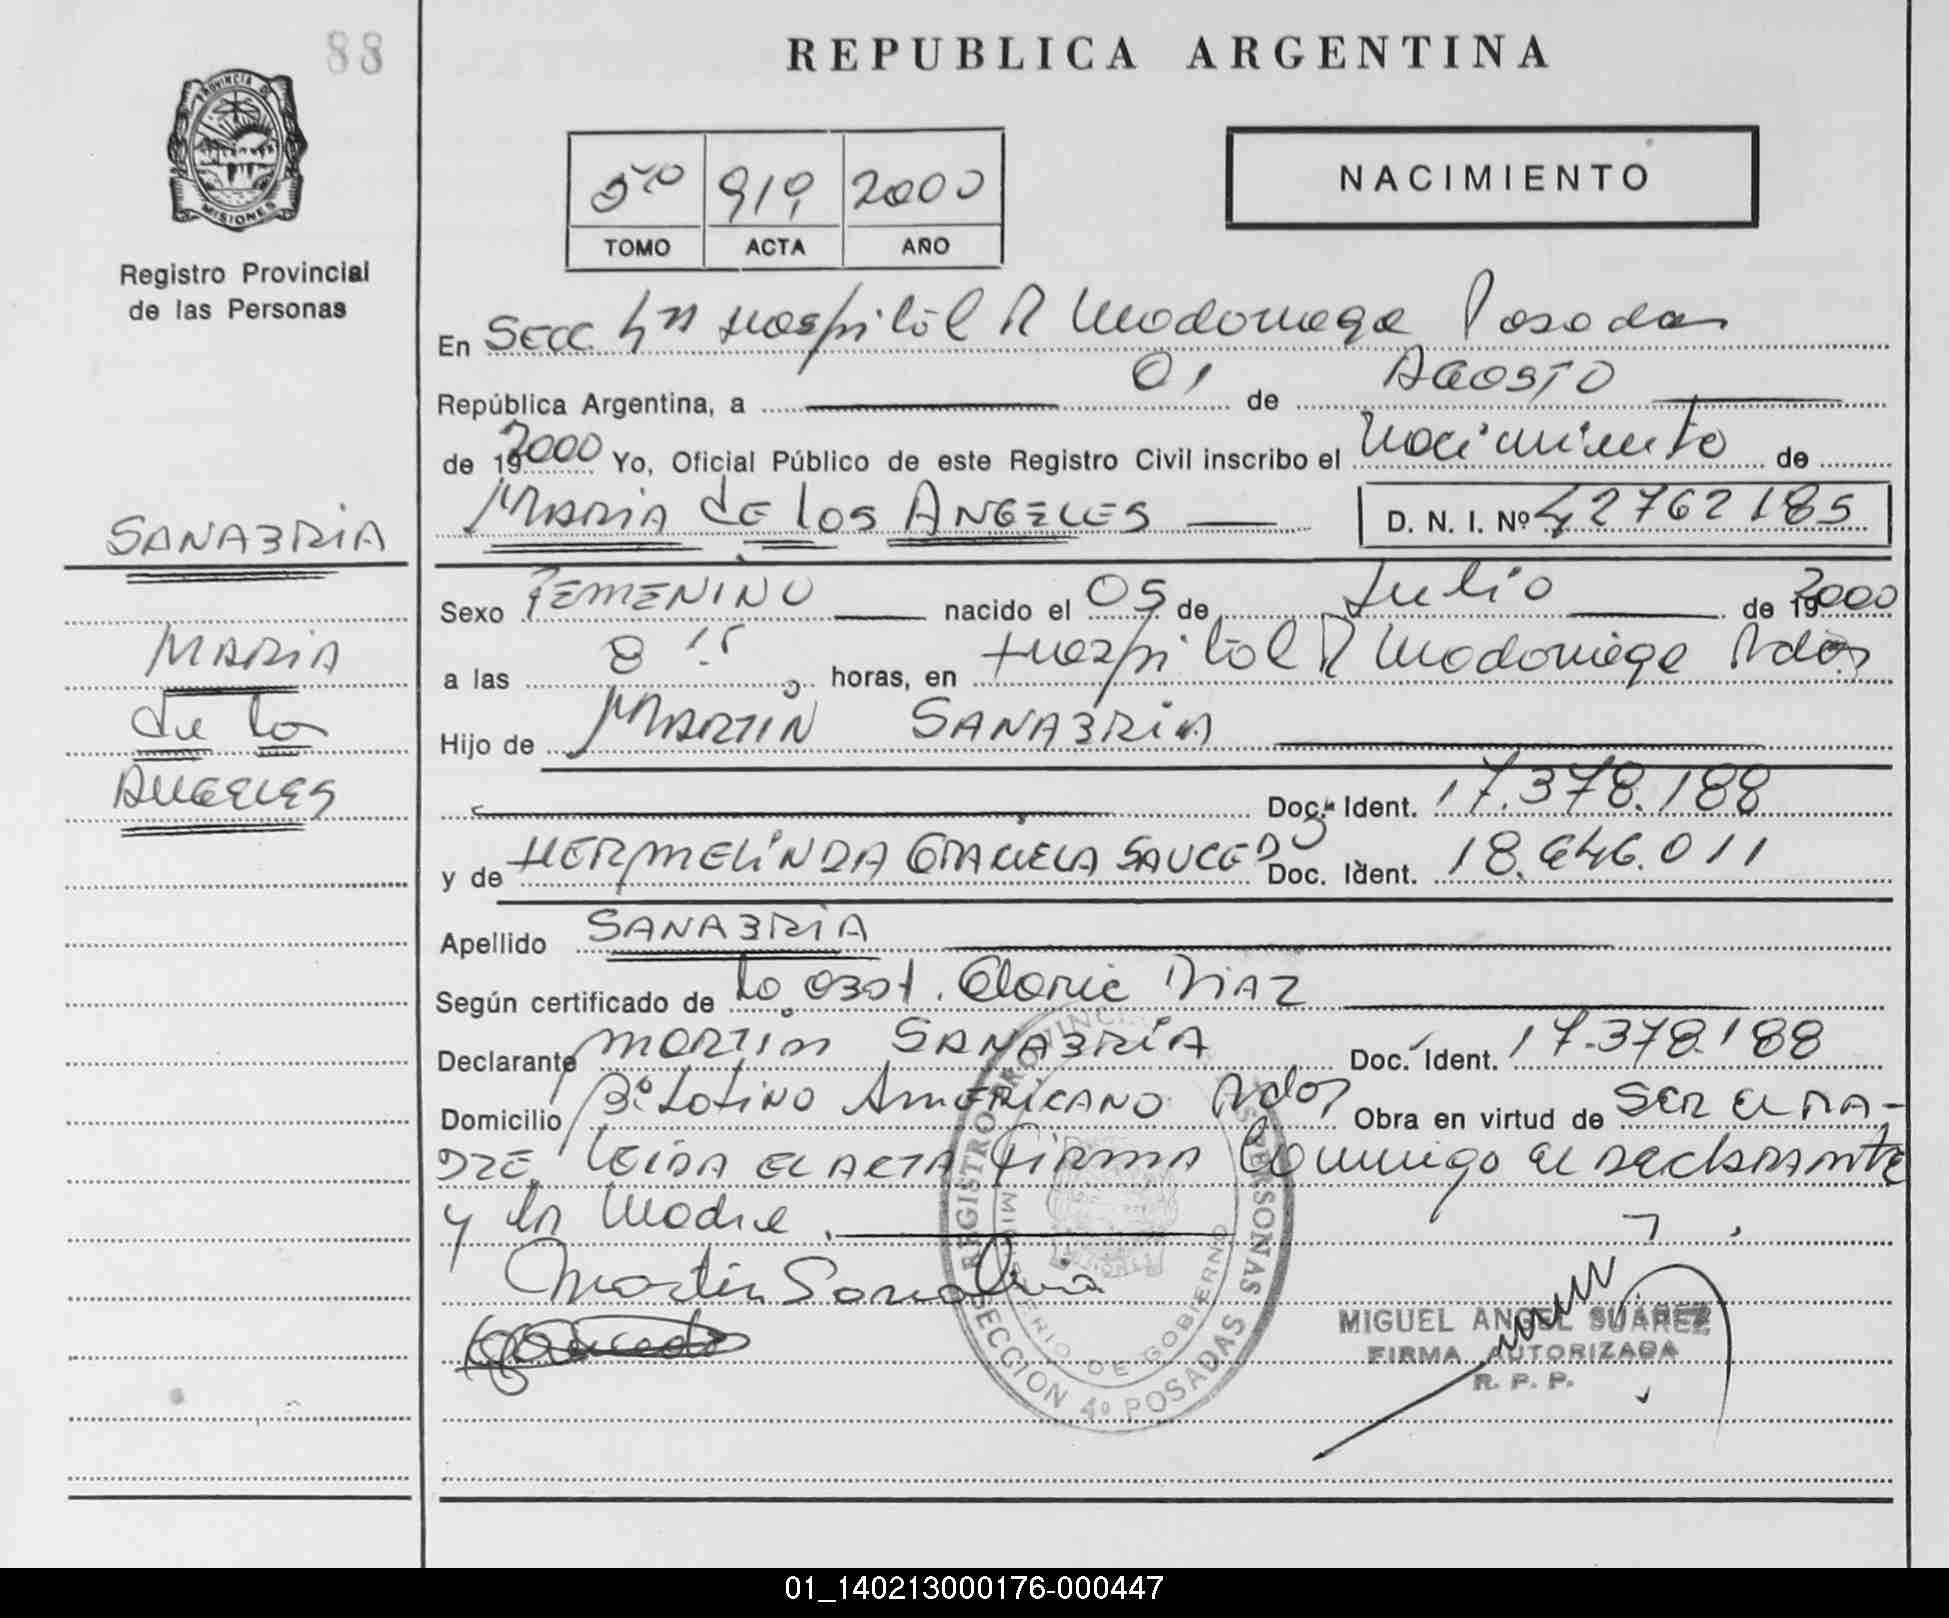 88
REPUBLICA ARGENTINA
PROVINCIA DE
MISIONES
Registro Provincial
de las Personas
5to 919 2000
TOMO ACTA AÑO
NACIMIENTO
En Secc 4ta Hospital R Madariaga Posadas
República Argentina, a 01 de Agosto
de 19 2000 Yo, Oficial Público de este Registro Civil inscribo el Nacimiento de
MARIA de los ANGELES D. N. I. Nº 42762185
SANABRIA
MARIA
de los
ANGELES
Sexo FEMENINO nacido el 05 de Julio de 19 2000
a las 8 15 horas, en Hospital R Madariaga Pdas
Hijo de MARTIN SANABRIA
Doc. Ident. 17.378.188
y de HERMELINDA GRACIELA SAUCEDO Doc. Ident. 18.646.011
Apellido SANABRIA
Según certificado de la obst. Gloria DIAZ
Declarante MARTIN SANABRIA Doc. Ident. 17.378.188
Domicilio Bº Latino AMERICANO Pdas Obra en virtud de SER EL PA-
DRE LEIDA EL ACTA FIRMA Conmigo el declarante
y la Madre.
Martin Sanabria
REGISTRO PROVINCIAL PERSONAS
MINISTERIO DE GOBIERNO
SECCION 4º POSADAS
MIGUEL ANGEL SUAREZ
FIRMA AUTORIZADA
R. P. P.
01_140213000176-000447